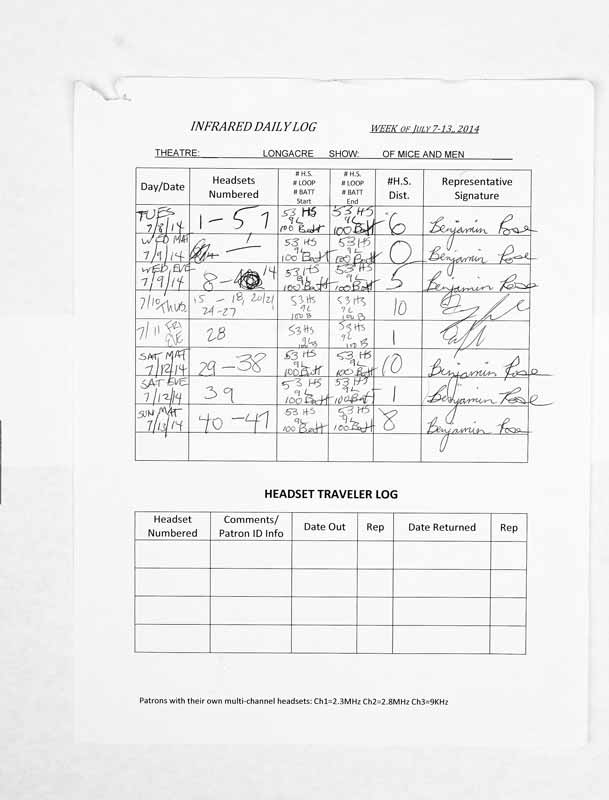 INFRARED DAILY LOG WEEK OF JULY 7-13, 2014
THEATRE: LONGACRE SHOW: OF MICE AND MEN
Day/Date Headsets Numbered # H.S. # LOOP # BATT Start # H.S. # LOOP # BATT End #H.S. Dist. Representative Signature
TUES 7/8/14 1-57 53 HS 9L 100 Batt 53 HS 9L 100 Batt 6 Benjamin Rose
WED MAT 7/9/14 53 HS 9L 100 Batt 53 HS 9L 100 Batt 0 Benjamin Rose
WED EVE 7/9/14 8-14 53 HS 9L 100 Batt 53 HS 9L 100 Batt 5 Benjamin Rose
7/10 THUS 15-18, 20/21 24-27 53 HS 9L 100 B 53 HS 9L 100 B 10
7/11 FRI EVE 28 53 HS 9L 100 B 53 HS 9L 100 B 1
SAT MAT 7/12/14 29-38 53 HS 9L 100 Batt 53 HS 9L 100 Batt 10 Benjamin Rose
SAT EVE 7/12/14 39 53 HS 9L 100 Batt 53 HS 9L 100 Batt 1 Benjamin Rose
SUN MAT 7/13/14 40-47 53 HS 9L 100 Batt 53 HS 9L 100 Batt 8 Benjamin Rose
HEADSET TRAVELER LOG
Headset Numbered Comments/ Patron ID Info Date Out Rep Date Returned Rep
Patrons with their own multi-channel headsets: Ch1=2.3MHz Ch2=2.8MHz Ch3=9KHz